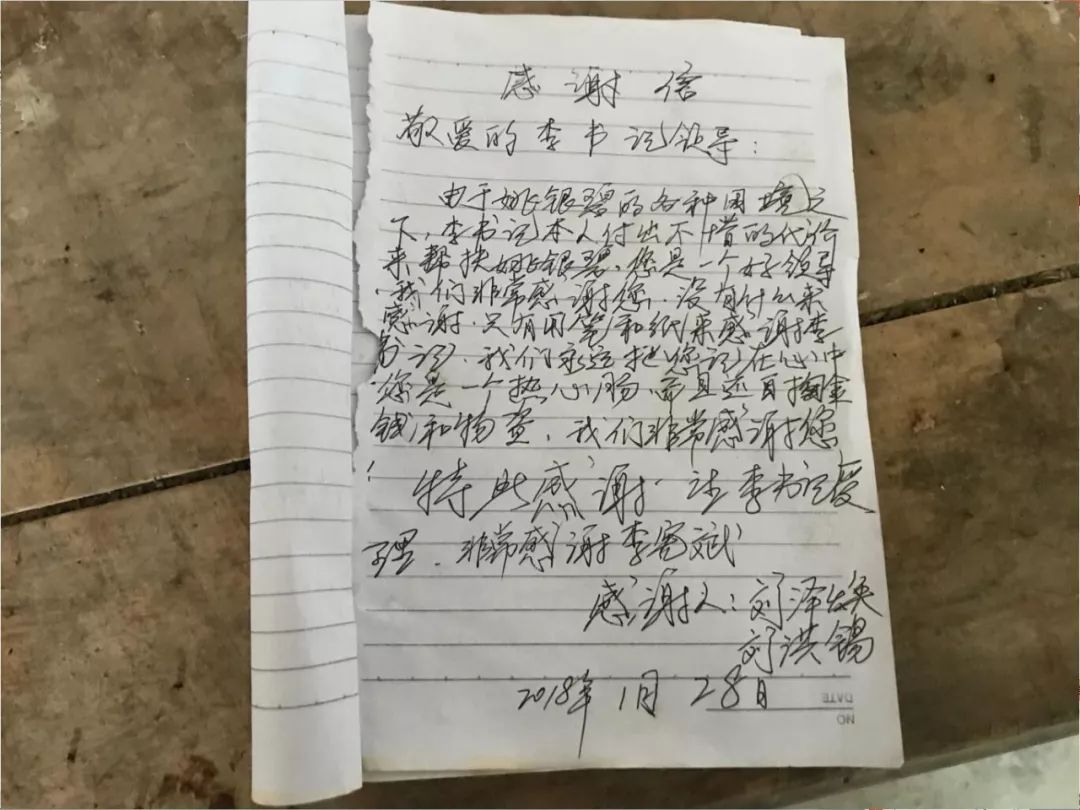 感谢信
敬爱的李书记领导：
由于姚银碧的各种困境之
下，李书记本人付出不惜的代价
来帮扶姚银碧，您是一个好领导
，我们非常感谢您，没有什么来
感谢，只有用笔和纸来感谢李
书记，我们永远把您记在心中
您是一个热心肠，而且还自掏金
钱和物资，我们非常感谢您
！特此感谢，请李书记受
理，非常感谢李 斌
感谢人：刘泽焕
刘洪锡
2018年1月28日
DATE
NO